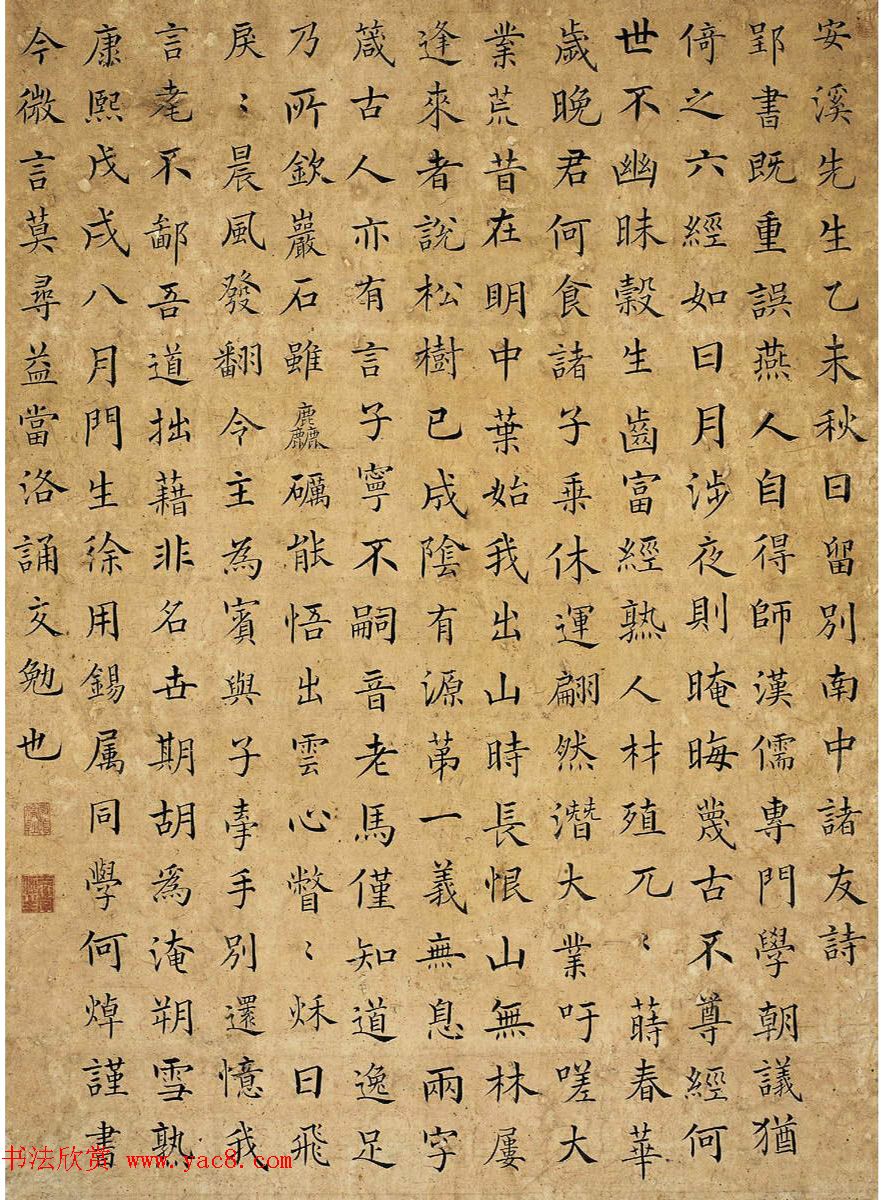 安溪先生乙未秋日留別南中諸友詩
郢書既重誤燕人自得師漢儒專門學朝議猶
倚之六經如日月涉夜則晻晦蔑古不尊經何
世不幽昧穀生齒富經熟人材殖兀〻蒔春華
歲晚君何食諸子乗休運翩然潛大業吁嗟大
業荒昔在明中葉始我出山時長恨山無林屢
逢來者說松樹已成陰有源苐一義無息兩字
箴古人亦有言子寧不嗣音老馬僅知道逸足
乃所欽巖石雖麤礪能悟出雲心瞥〻秌日飛
戾〻晨風發翻令主為賓與子牽手別還憶我
言耄不鄙吾道拙藉非名世期胡為淹朔雪孰
康熙戊戌八月門生徐用錫属同學何焯謹書
今微言莫尋益當洛誦交勉也
书法欣赏 www.yac8.com